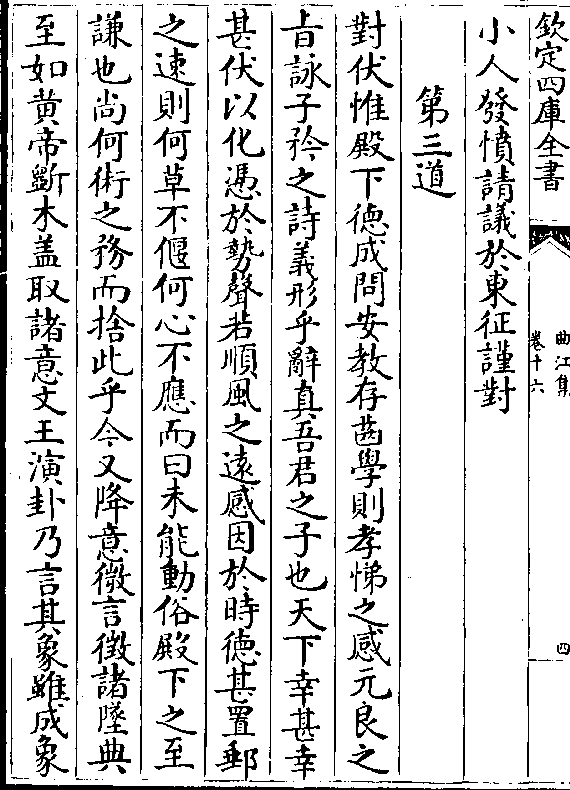 欽定四庫全書
曲江集
卷十六
四
小人發憤請議於東征謹對
第三道
對伏惟殿下德成問安教存齒學則孝悌之感元良之
旨詠子矜之詩義形乎辭真吾君之子也天下幸甚幸
甚伏以化憑於勢聲若順風之遠感因於時德甚置郵
之速則何草不偃何心不應而曰未能動俗殿下之至
謙也尚何術之務而捨此乎今又降意微言徴諸墜典
至如黄帝斵木盖取諸意文王演卦乃言其象雖成象